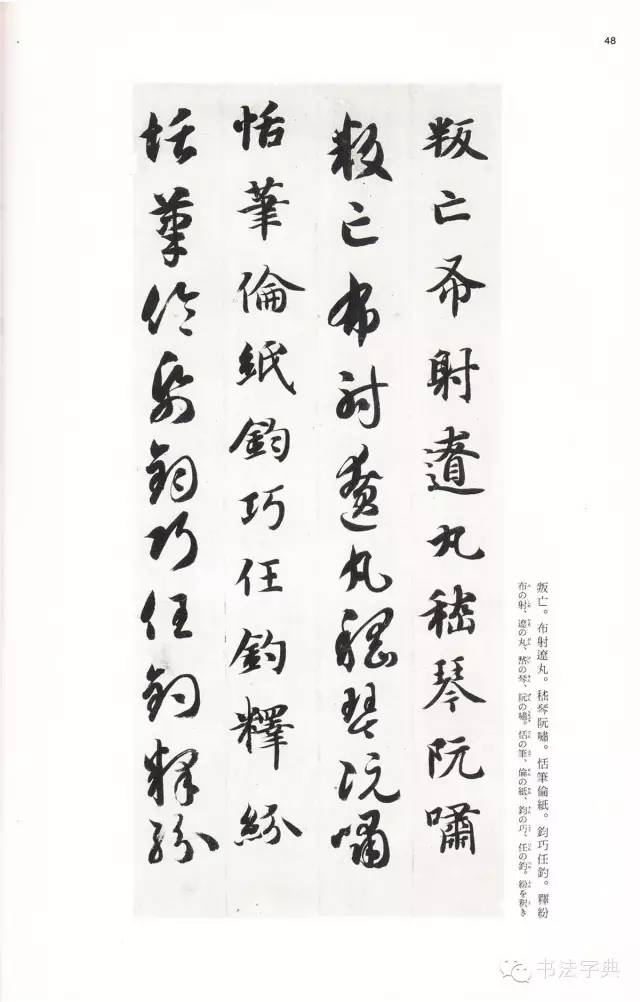 48
叛亡布射遼丸嵇琴阮嘯
叛亡布射遼丸嵇琴阮嘯
恬筆倫紙鈞巧任釣釋紛
恬筆倫紙鈞巧任釣釋紛
叛亡。布射遼丸。嵇琴阮嘯。恬筆倫紙。鈞巧任釣。釋紛
布の射、遼の丸、嵇の琴、阮の嘯。恬の筆、倫の紙、鈞の巧、任の釣。紛を釈き
书法字典